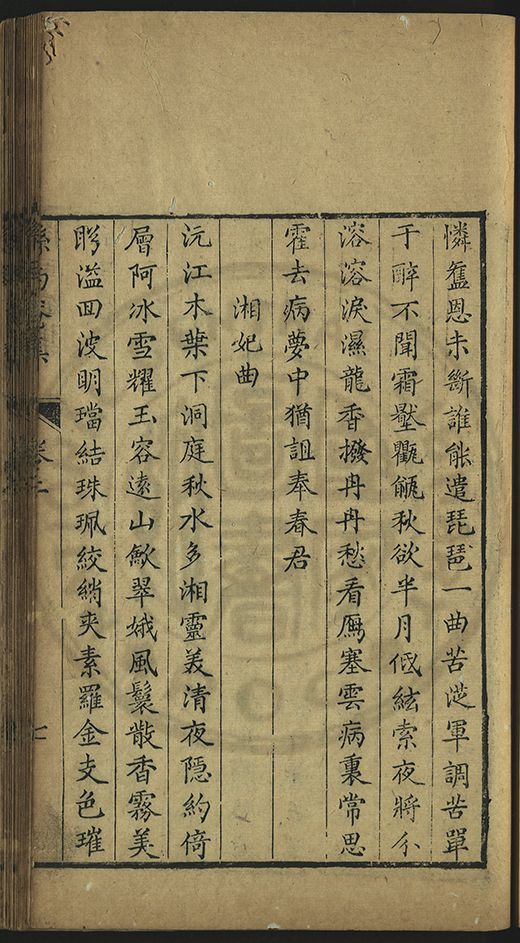 憐舊恩未斷誰能遣琵琶一曲苦從軍調苦單
于醉不聞霜壓氍毹秋欲半月低絃索夜將分
溶溶淚濕龍香撥冉冉愁看鴈塞雲病裏常思
霍去病夢中猶詛奉春君
湘妃曲
沅江木葉下洞庭秋水多湘靈羙清夜隱約倚
層阿冰雪耀玉容遠山歛翠娥風鬟散香霧美
眄溢回波明璫結珠珮絞綃夾素羅金支色璀
卷二
七